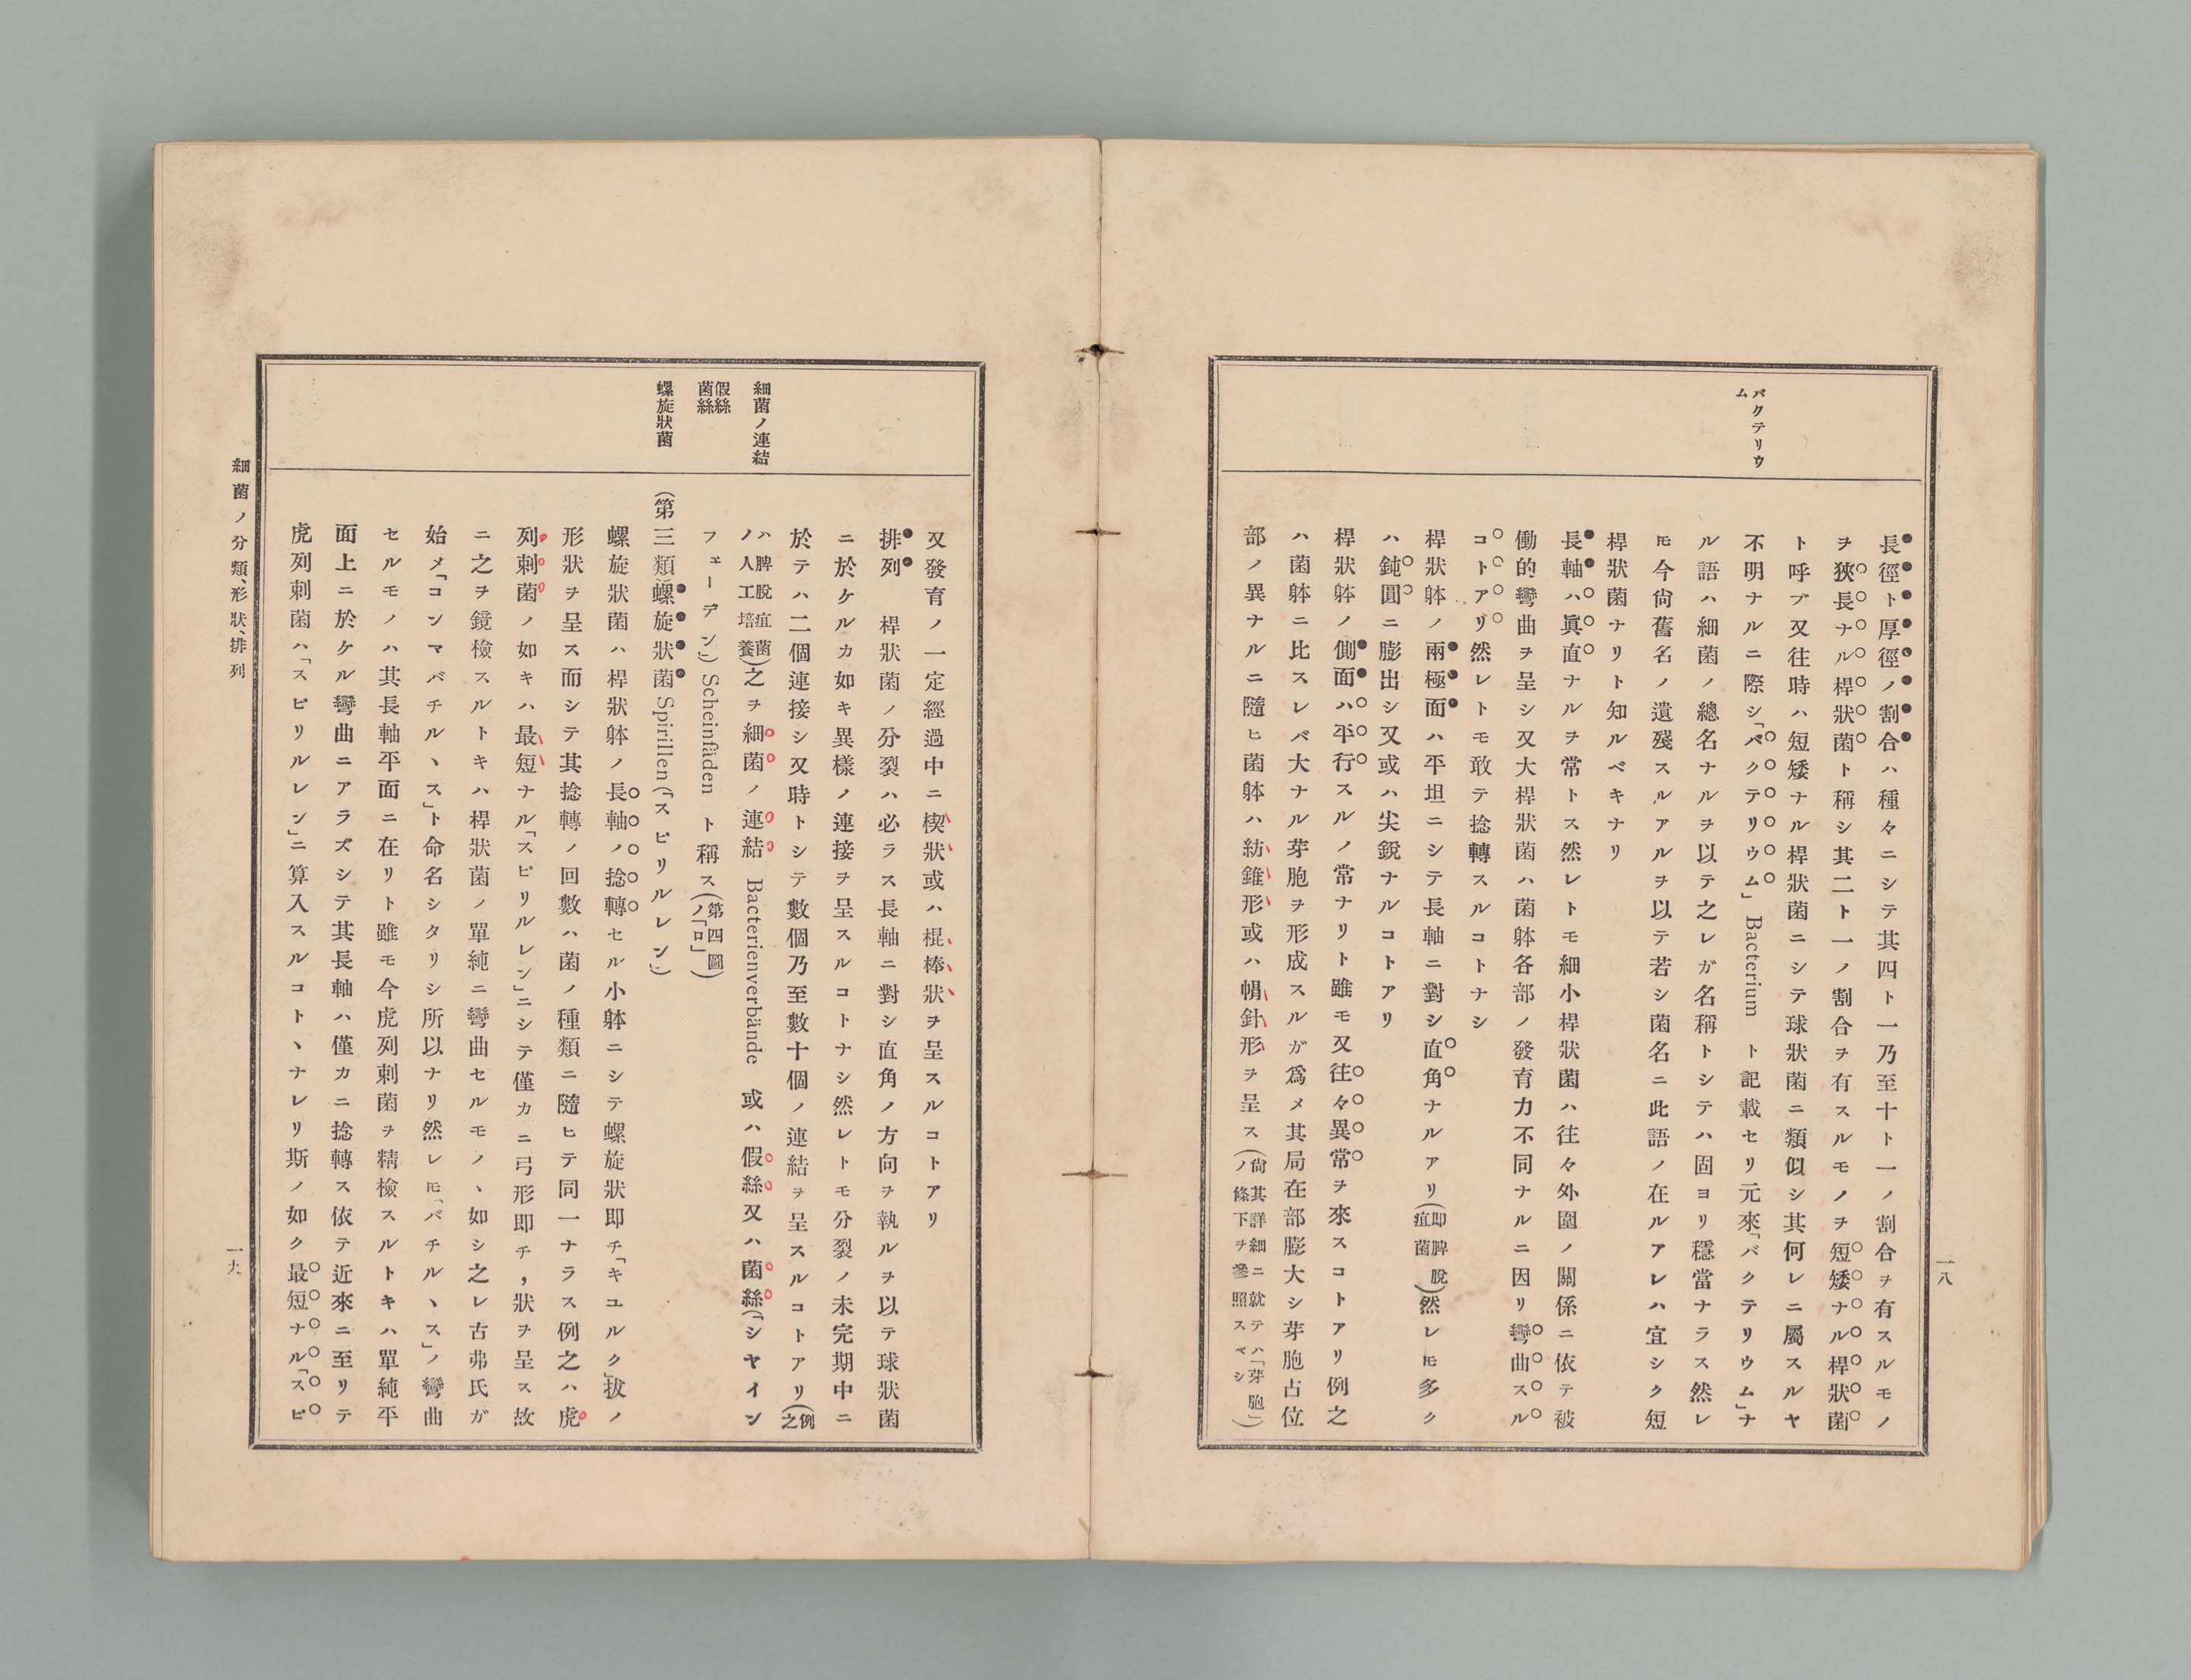 バクテリウ
ム
長徑ト厚徑ノ割合ハ種々ニシテ其四ト一乃至十ト一ノ割合ヲ有スルモノ
ヲ狹長ナル桿狀菌ト稱シ其二ト一ノ割合ヲ有スルモノヲ短矮ナル桿狀菌
ト呼ブ又往時ハ短矮ナル桿狀菌ニシテ球狀菌ニ類似シ其何レニ屬スルヤ
不明ナルニ際シ「バクテリウム」 Bacterium ト記載セリ元來「バクテリウム」ナ
ル語ハ細菌ノ總名ナルヲ以テ之レガ名稱トシテハ固ヨリ穩當ナラス然レ
𪜈今尙舊名ノ遺殘スルアルヲ以テ若シ菌名ニ此語ノ在ルアレハ宜シク短
桿狀菌ナリト知ルベキナリ
長軸ハ眞直ナルヲ常トス然レトモ細小桿狀菌ハ往々外圍ノ關係ニ依テ被
働的彎曲ヲ呈シ又大桿狀菌ハ菌躰各部ノ發育力不同ナルニ因リ彎曲スル
コトアリ然レトモ敢テ捻轉スルコトナシ
桿狀躰ノ兩極面ハ平坦ニシテ長軸ニ對シ直角ナルアリ(即脾脫疽菌)然レ𪜈多ク
ハ鈍圓ニ膨出シ又或ハ尖銳ナルコトアリ
桿狀躰ノ側面ハ平行スルノ常ナリト雖モ又往々異常ヲ來スコトアリ例之
ハ菌躰ニ比スレバ大ナル芽胞ヲ形成スルガ爲メ其局在部膨大シ芽胞占位
部ノ異ナルニ隨ヒ菌躰ハ紡錐形或ハ帽針形ヲ呈ス(尙其詳細ニ就テハ「芽胞」ノ條下ヲ參照スベシ)
一八
細菌ノ連結
假絲
菌絲
螺旋狀菌
又發育ノ一定經過中ニ楔狀或ハ棍棒狀ヲ呈スルコトアリ
排列 桿狀菌ノ分裂ハ必ラス長軸ニ對シ直角ノ方向ヲ執ルヲ以テ球狀菌
ニ於ケルカ如キ異樣ノ連接ヲ呈スルコトナシ然レトモ分裂ノ未完期中ニ
於テハ二個連接シ又時トシテ數個乃至數十個ノ連結ヲ呈スルコトアリ(例之
ハ脾脫疽菌ノ人工培養)之ヲ細菌ノ連結 Bacterienverbände 或ハ假絲又ハ菌絲(「シヤイン
フェーデン」) Scheinfäden ト稱ス(第四圖ノ「ロ」)
(第三類)螺旋狀菌 Spirillen(「スピリルレン」)
螺旋狀菌ハ桿狀躰ノ長軸ノ捻轉セル小躰ニシテ螺旋狀即チ「キユルク」拔ノ
形狀ヲ呈ス而シテ其捻轉ノ回數ハ菌ノ種類ニ隨ヒテ同一ナラス例之ハ虎
列刺菌ノ如キハ最短ナル「スピリルレン」ニシテ僅カニ弓形即チ,狀ヲ呈ス故
ニ之ヲ鏡檢スルトキハ桿狀菌ノ單純ニ彎曲セルモノヽ如シ之レ古弗氏ガ
始メ「コンマバチルヽス」ト命名シタリシ所以ナリ然レ𪜈「バチルヽス」ノ彎曲
セルモノハ其長軸平面ニ在リト雖モ今虎列刺菌ヲ精檢スルトキハ單純平
面上ニ於ケル彎曲ニアラズシテ其長軸ハ僅カニ捻轉ス依テ近來ニ至リテ
虎列刺菌ハ「スピリルレン」ニ算入スルコトヽナレリ斯ノ如ク最短ナル「スピ
細菌ノ分類、形狀、排列
一九